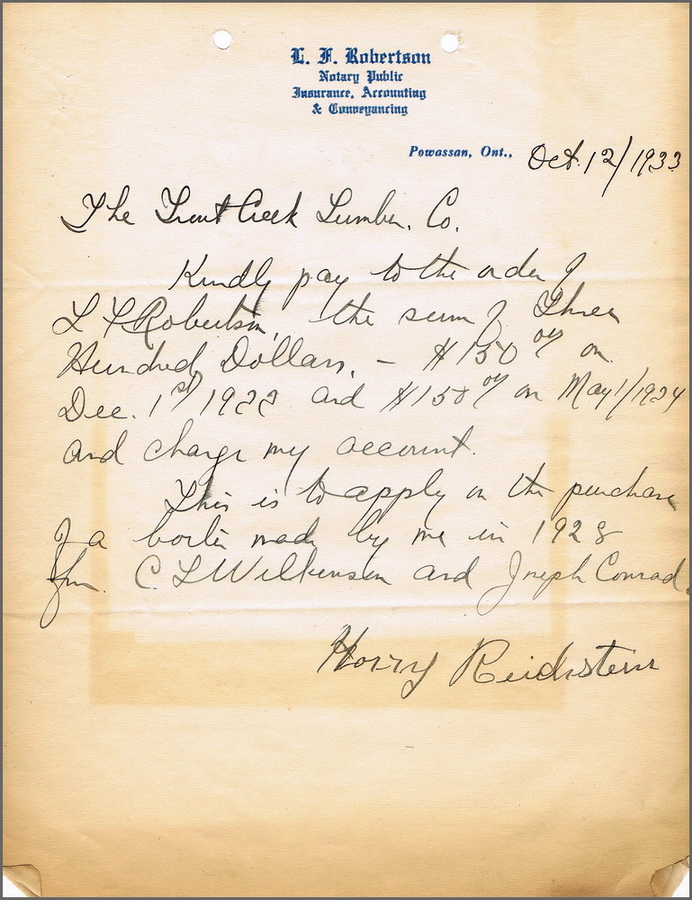 L. F. Robertson
Notary Public
Insurance, Accounting
& Conveyancing
Powassan, Ont., Oct. 12/1933
The Trout Creek Lumber Co.
Kindly pay to the order of
L F Robertson, the sum of Three
Hundred Dollars, – $150 00/ on
Dec. 1st 1933 and $150 00/ on May 1/1934
and charge my account.
This is to apply on the purchase
of a boiler made by me in 1928
from C. L Wilkinson and Joseph Conrad.
Harry Reichstein